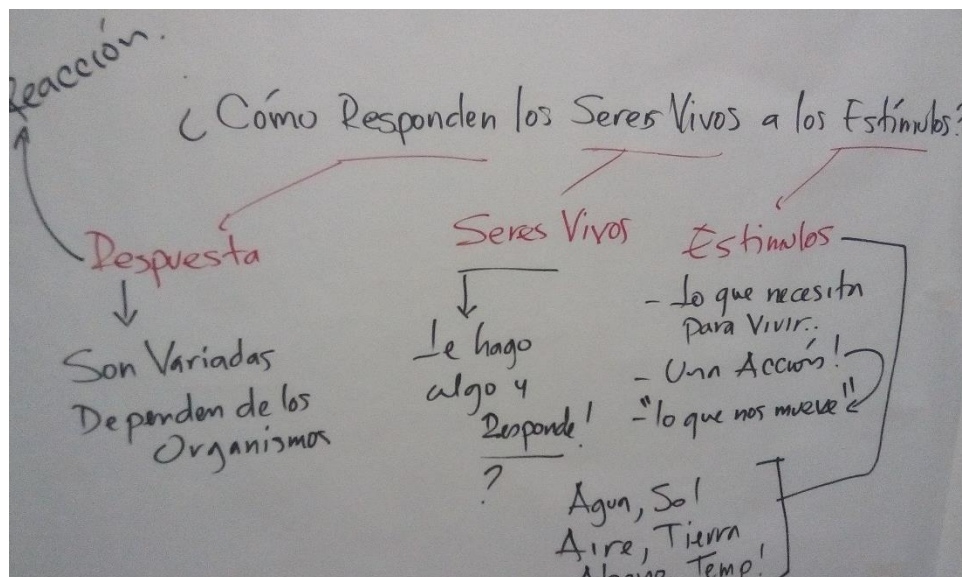 Reacción.
¿Cómo Responden los Seres Vivos a los Estímulos?
Respuesta
Son Variadas
Dependen de los
Organismos
Seres Vivos
Le hago
algo y
Responde!
?
Estimulos
- Lo que necesita
para Vivir..
- Una Acción!
- "lo que nos mueve"
Agua, Sol
Aire, Tierra
Temp!